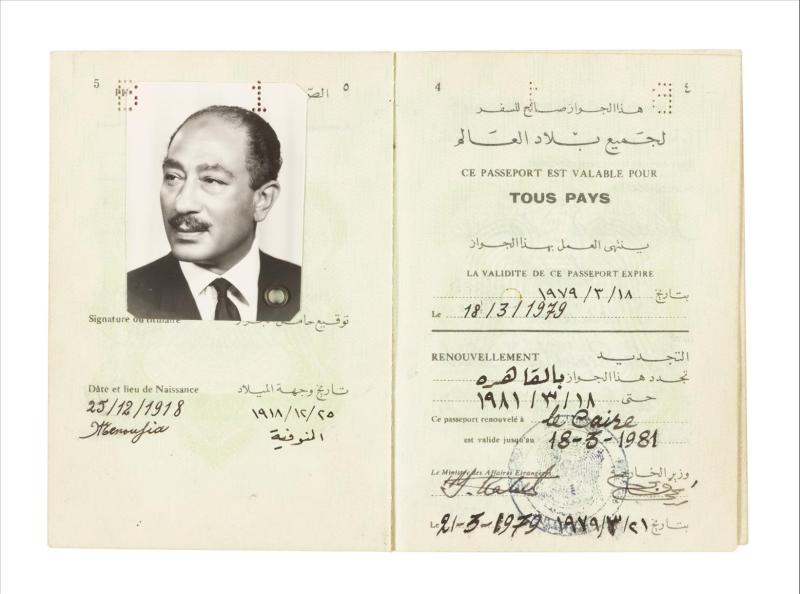 5
٥
الصـ
Signature du titulaire
توقيع حامل
Dâte et lieu de Naissance
تاريخ وجهة الميلاد
25/12/1918
١٩١٨/١٢/٢٥
Menoufia
المنوفية
4
٤
هذا الجواز صالح للسفر
لجميع بلاد العالم
CE PASSEPORT EST VALABLE POUR
TOUS PAYS
ينتهى العمل بهذا الجواز
LA VALIDITE DE CE PASSEPORT EXPIRE
بتاريخ ١٩٧٩/٣/١٨
Le 18/3/1979
RENOUVELLEMENT
التجديد
تجدد هذا الجواز بالقاهره
حتى ١٩٨١/٣/١٨
Ce passeport renouvelé à le Caire
est valide jusqu'au 18-3-1981
Le Ministre des Affaires Etrangères
وزير الخارجية
Le 21-3-1979
بتاريخ ١٩٧٩/٣/٢١